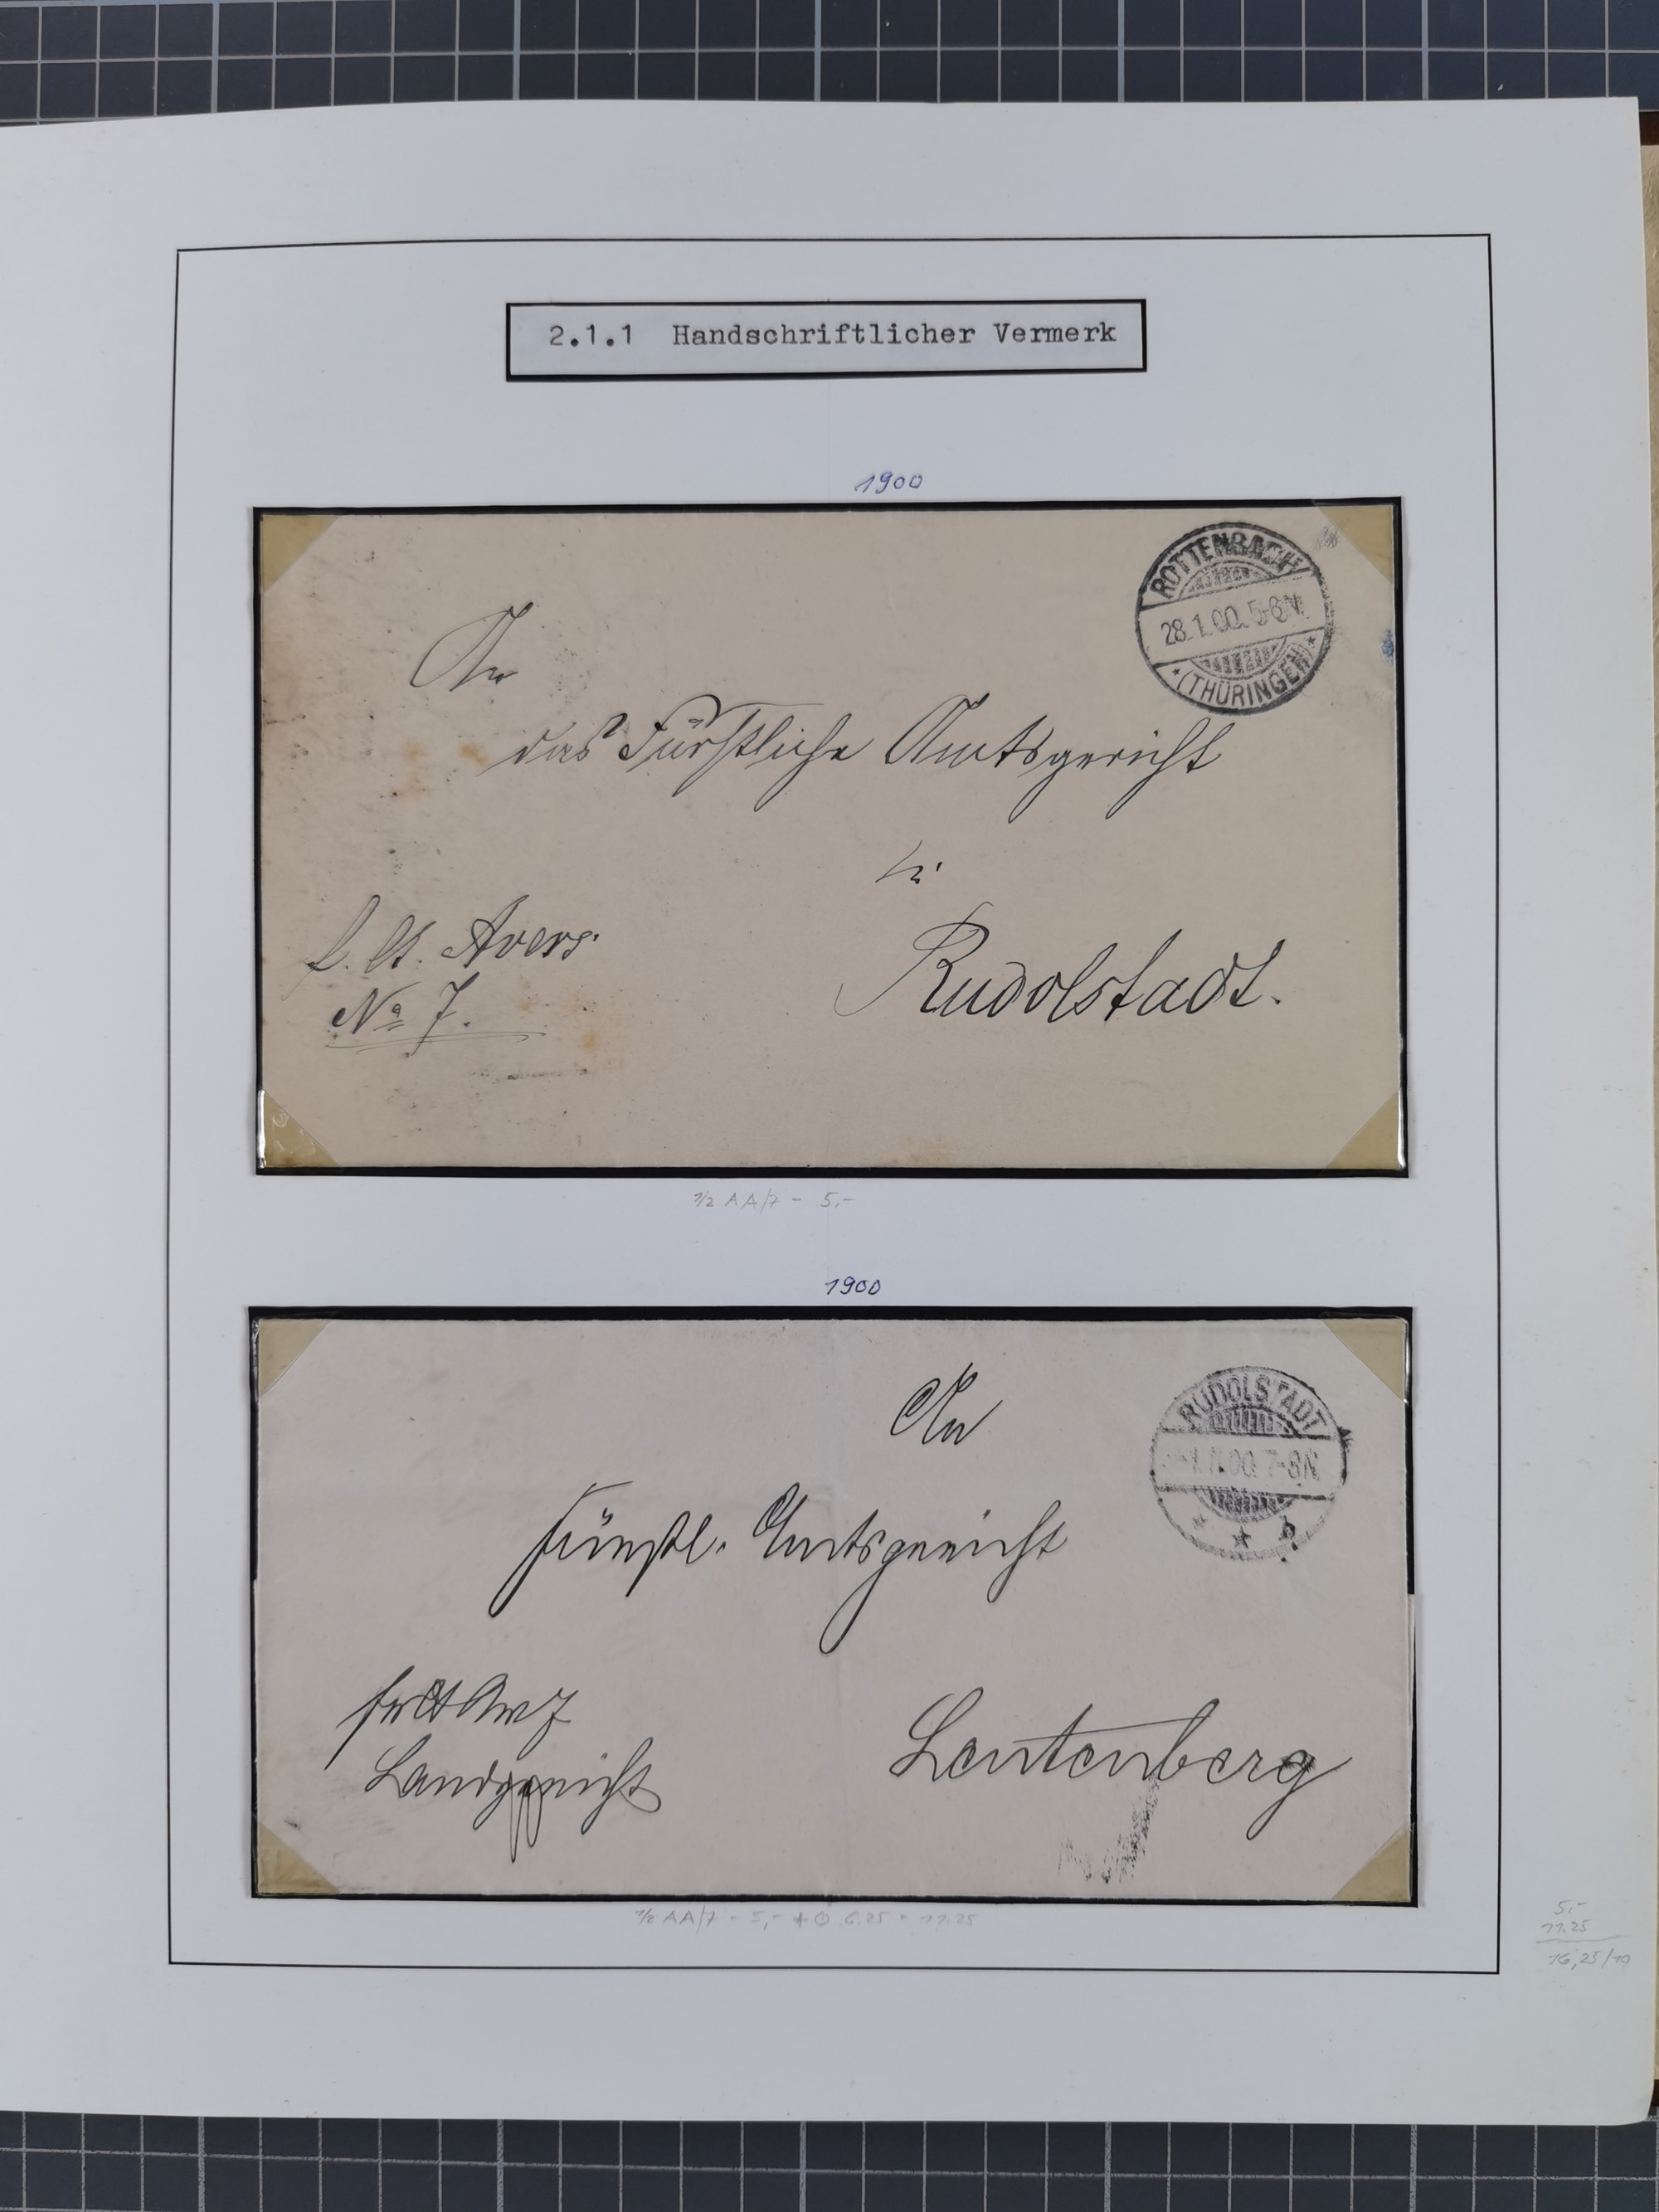 2.1.1 Handschriftlicher Vermerk
1900
ROTTENBACH
28.1.00. 5-6N.
*(THÜRINGEN)*
An
das Fürstliche Amtsgericht
in
Rudolstadt.
f. Ct. Avers.
No 7.
1/2 AA/7 - 5,-
1900
RUDOLSTADT
00. 7-8N.
* * b
An
Fürstl. Amtsgericht
Leutenberg
Landgericht
1/2 AA/7 - 5,- + 6.25 = 11.25
5,-
11.25
16,25/10